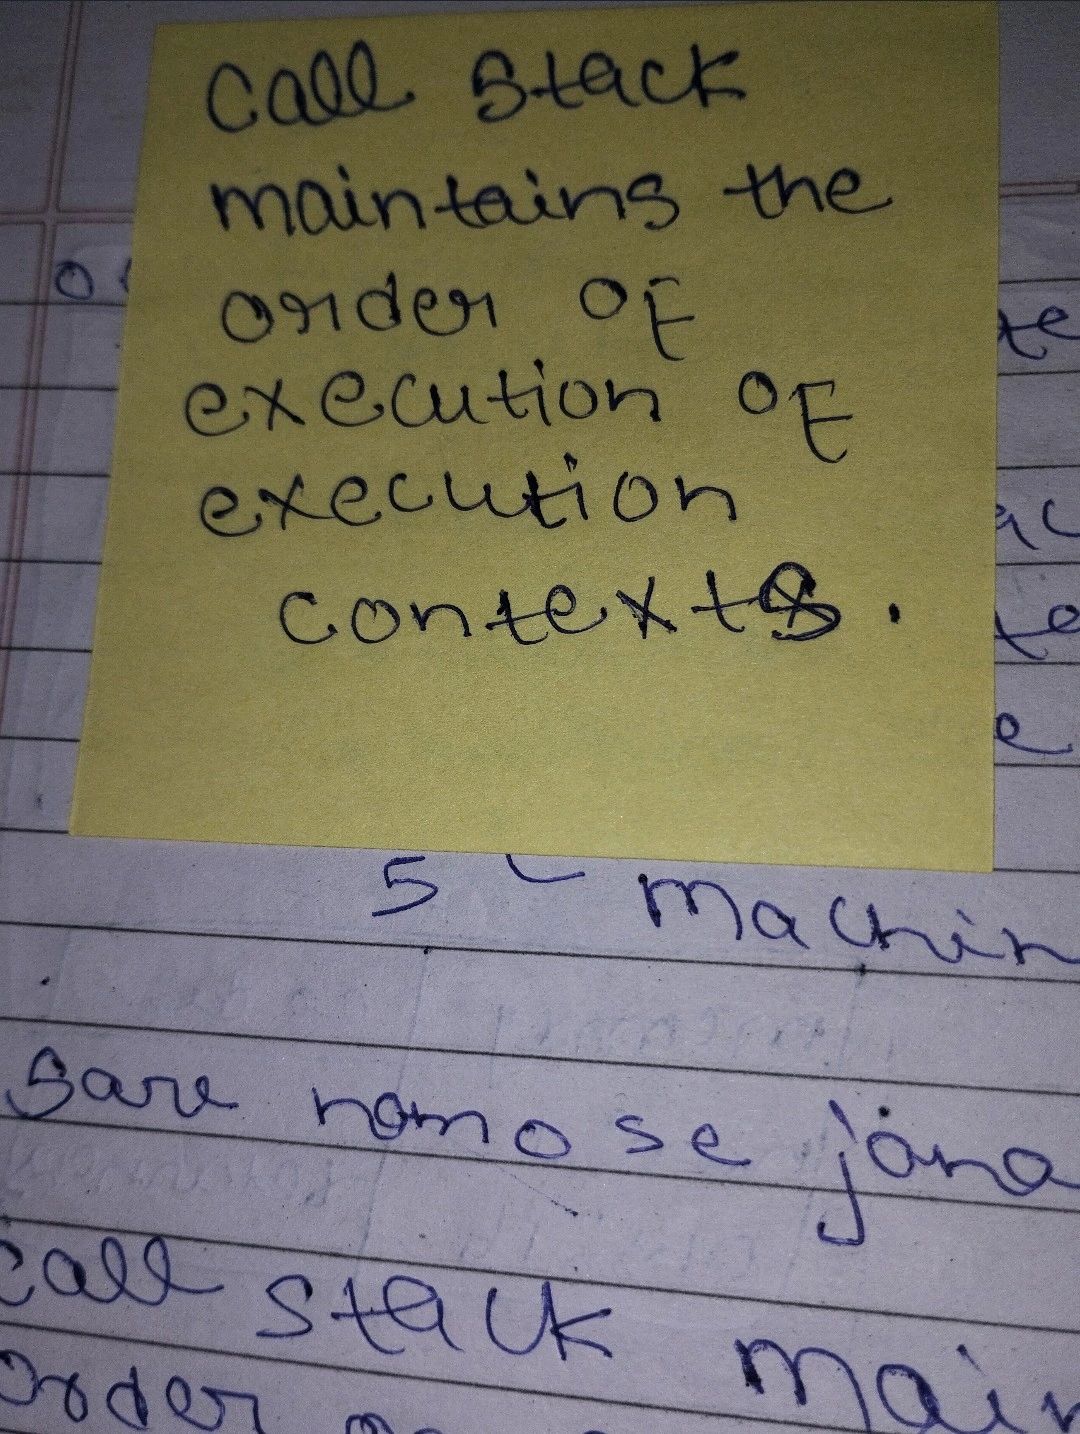 Call Stack
maintains the
order of
execution of
execution
contexts.
5 Machin
Sare namo se jana
call stack main
Order